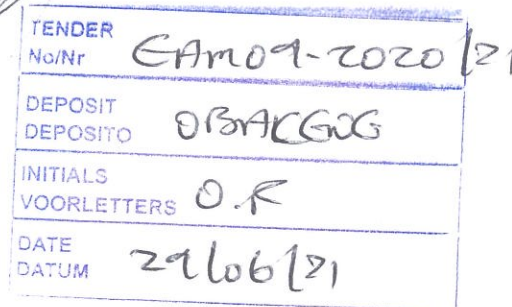 TENDER
No/Nr EAM09-2020/21
DEPOSIT
DEPOSITO OBAKGOG
INITIALS
VOORLETTERS O.R
DATE
DATUM 29/06/21